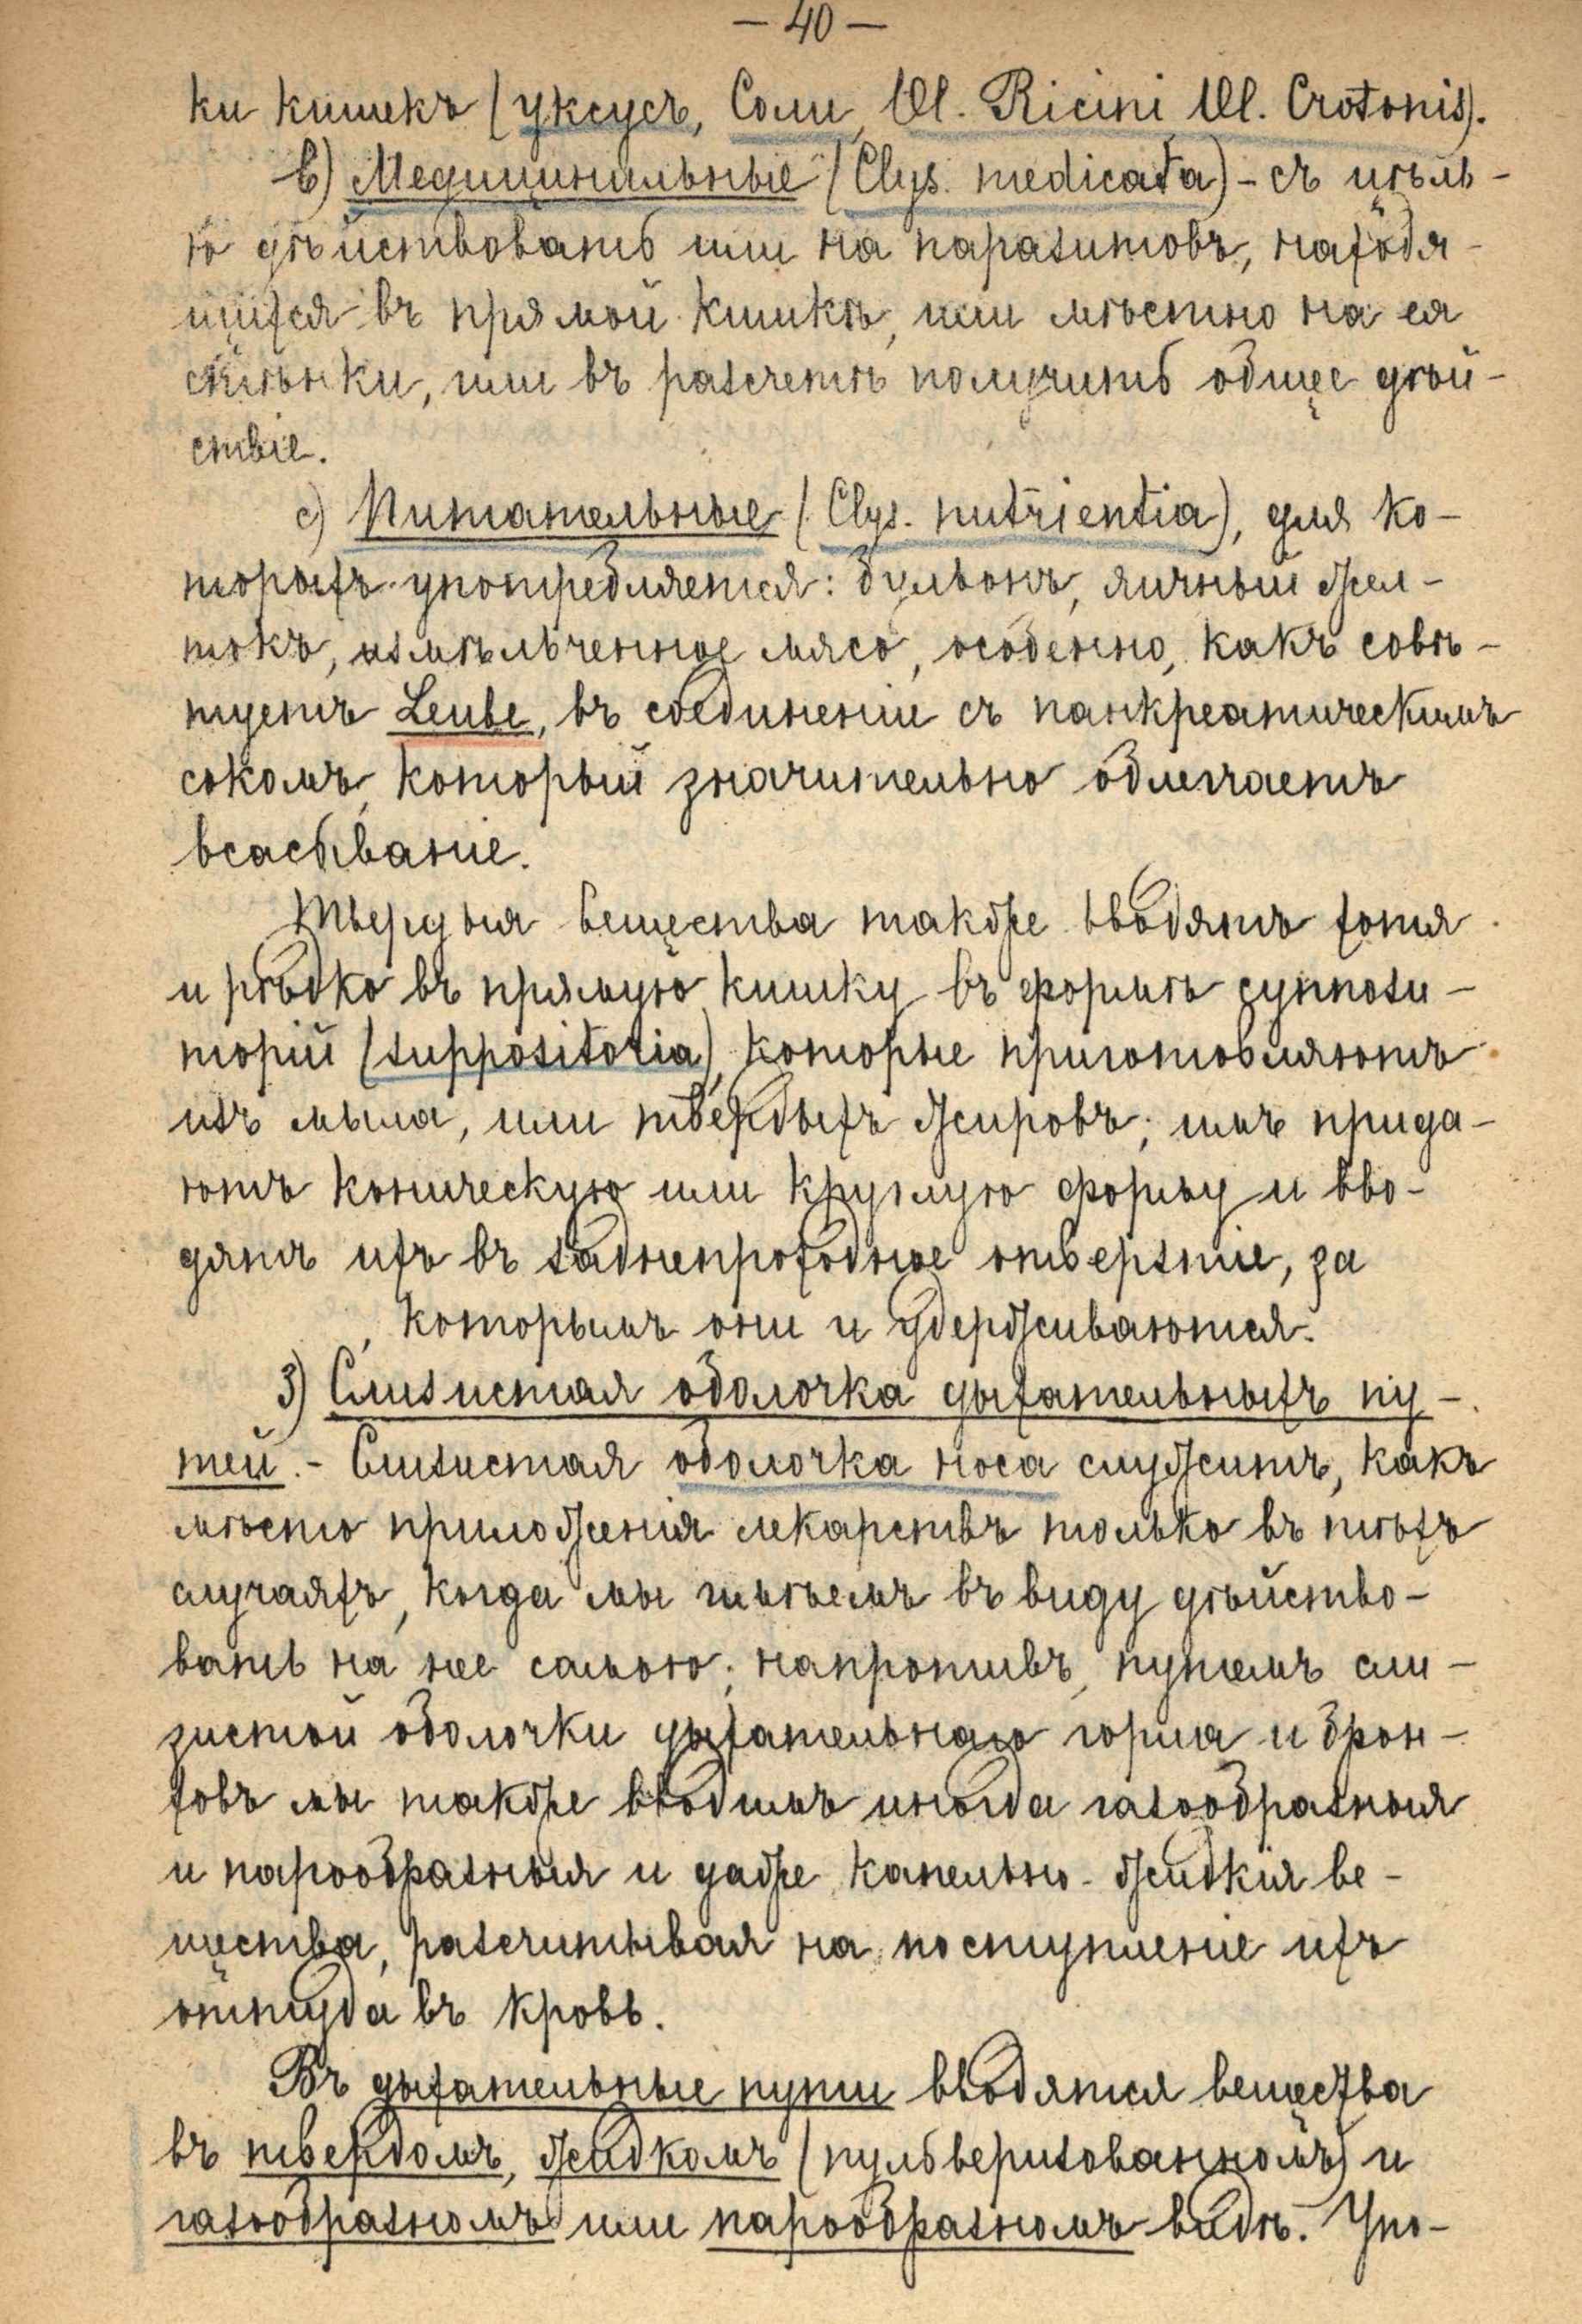 — 40 —
ки кишекъ (уксусъ, Соли, Ol. Ricini Ol. Crotonis).
b) Медицинальные (Clys. medicata) - съ цѣль-
ю дѣйствовать или на паразитовъ, находя-
щихся въ прямой кишкѣ, или мѣстно на ея
стѣнки, или въ разсчетѣ получить общее дѣй-
ствіе.
с) Питательные (Clys. nutrientia), для ко-
торыхъ употребляется: бульонъ, яичный жел-
токъ, измѣльченное мясо, особенно, какъ совѣ-
туетъ Leube, въ соединеніи съ панкреатическимъ
сокомъ, который значительно облегчаетъ
всасываніе.
Твердыя вещества также вводятъ хотя
и рѣдко въ прямую кишку въ формѣ суппози-
торій (suppositoria), которые приготовляютъ
изъ мыла, или твердыхъ жировъ; имъ прида-
ютъ коническую или круглую форму и вво-
дятъ ихъ въ заднепроходное отверзтіе, за
которымъ они и удерживаются.
3) Слизистая оболочка дыхательныхъ пу-
тей. - Слизистая оболочка носа служитъ, какъ
мѣсто приложенія лекарствъ только въ тѣхъ
случаяхъ, когда мы имѣемъ въ виду дѣйство-
вать на нее самою; напротивъ, путемъ сли-
зистой оболочки дыхательнаго горла и брон-
ховъ мы также вводимъ иногда газообразныя
и парообразныя и даже капельно-жидкія ве-
щества, разсчитывая на поступленіе ихъ
оттуда въ кровь.
Въ дыхательные пути вводятся вещества
въ твердомъ, жидкомъ (пульверизованномъ) и
газообразномъ или парообразномъ видѣ. Упо-